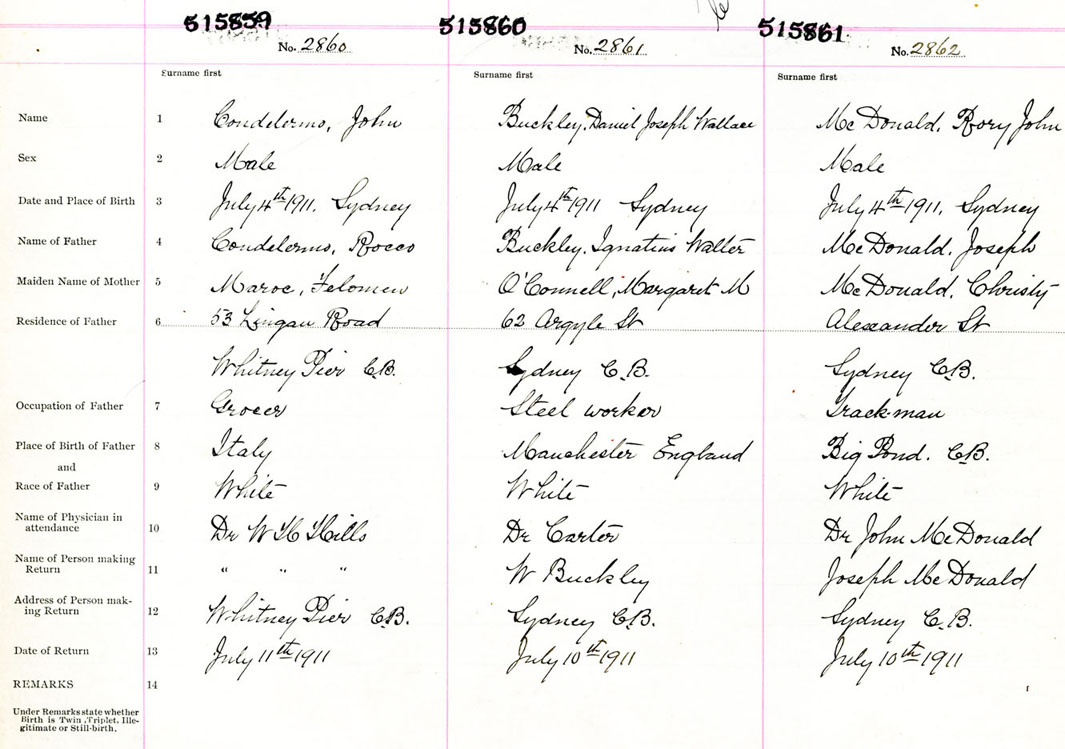 515859 515860 515861
No. 2860 No. 2861 No. 2862
Surname first Surname first Surname first
Name 1 Condelermo, John Buckley, Daniel Joseph Wallace McDonald, Rory John
Sex 2 Male Male Male
Date and Place of Birth 3 July 4th 1911. Sydney July 4th 1911 Sydney July 4th 1911, Sydney
Name of Father 4 Condelermo, Rocco Buckley, Ignatius Walter McDonald, Joseph
Maiden Name of Mother 5 Maroc, Felomen O'Connell, Margaret M McDonald, Christy
Residence of Father 6 53 Lingan Road 62 Argyle St Alexander St
Whitney Pier C.B. Sydney C.B. Sydney C.B.
Occupation of Father 7 Grocer Steel worker Trackman
Place of Birth of Father 8 Italy Manchester England Big Pond. C.B.
and
Race of Father 9 White White White
Name of Physician in
attendance 10 Dr W H Hills Dr Carter Dr John McDonald
Name of Person making
Return 11 " " " W Buckley Joseph McDonald
Address of Person mak-
ing Return 12 Whitney Pier C.B. Sydney C.B. Sydney C.B.
Date of Return 13 July 11th 1911 July 10th 1911 July 10th 1911
REMARKS 14
Under Remarks state whether
Birth is Twin, Triplet, Ille-
gitimate or Still-birth.